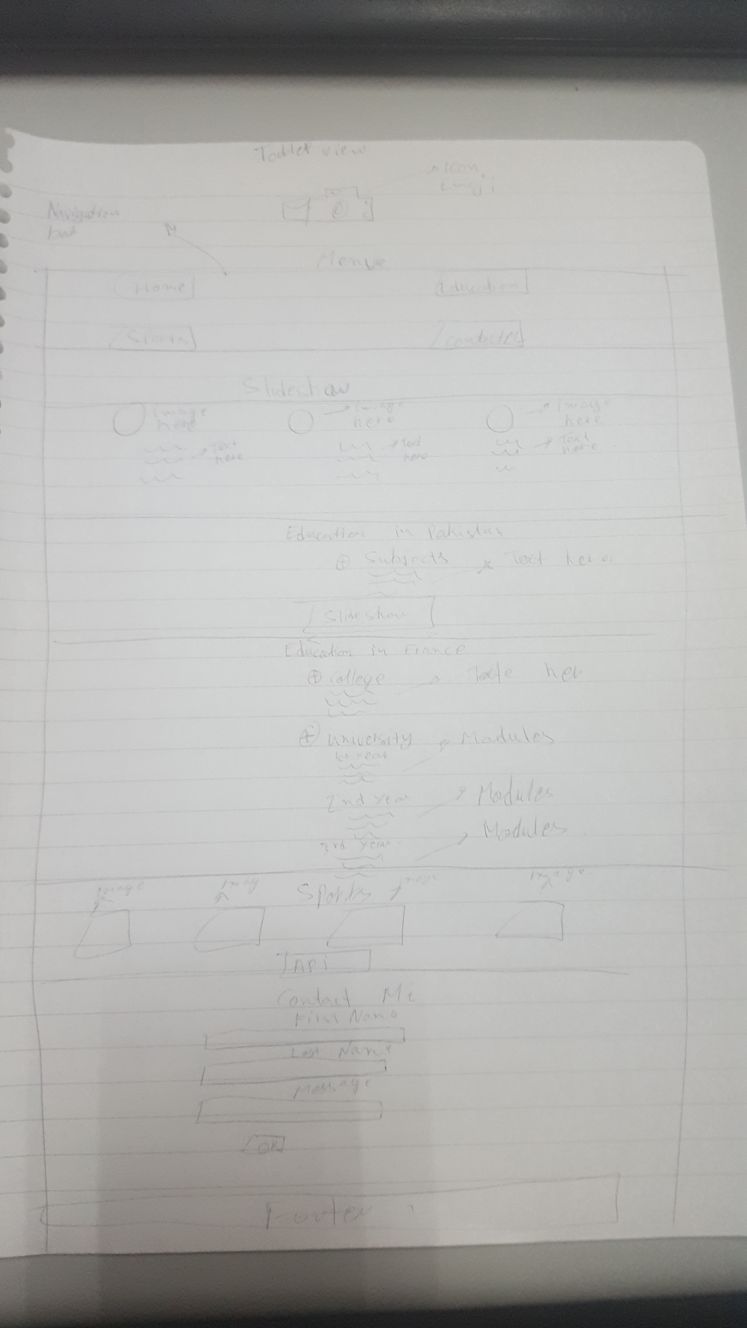 Tablet view
Icon,
Navigation
bar
Menue
Home Education
Slideshow
Image here Image here Image here
Text here Text here Text here
Education in Pakistan
Subjects Text here
Slideshow
Education in France
College her
University Modules
2nd year Modules
3rd year Modules
Image Image
Sports
API
Contact Me
First Name
Last Name
Message
OK
Footer